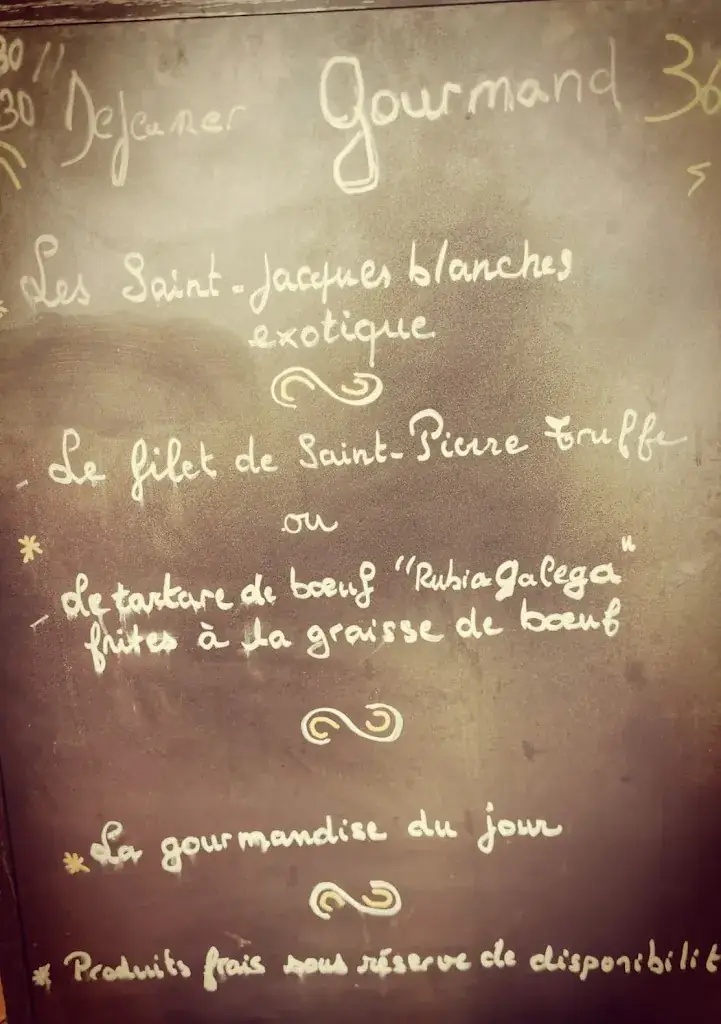 30 //
30 Dejeuner Gourmand 36
Les Saint-Jacques blanches
exotique
- Le filet de Saint-Pierre truffe
ou
* - Le tartare de bœuf "Rubia Galega"
frites à la graisse de bœuf
* La gourmandise du jour
* Produits frais sous réserve de disponibilit